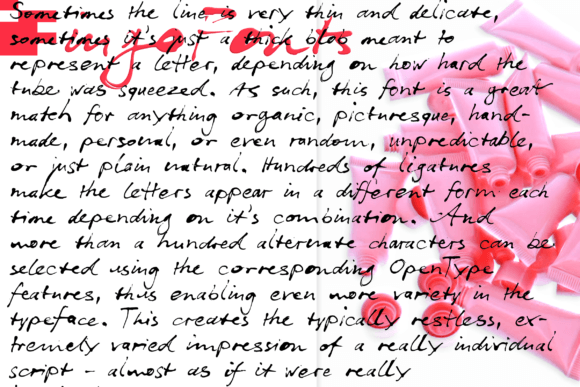 FingerFonts
Sometimes the line is very thin and delicate,
sometimes it's just a thick blob meant to
represent a letter, depending on how hard the
tube was squeezed. As such, this font is a great
match for anything organic, picturesque, hand-
made, personal, or even random, unpredictable,
or just plain natural. Hundreds of ligatures
make the letters appear in a different form each
time depending on it's combination. And
more than a hundred alternate characters can be
selected using the corresponding OpenType
features, thus enabling even more variety in the
typeface. This creates the typically restless, ex-
tremely varied impression of a really individual
script - almost as if it were really